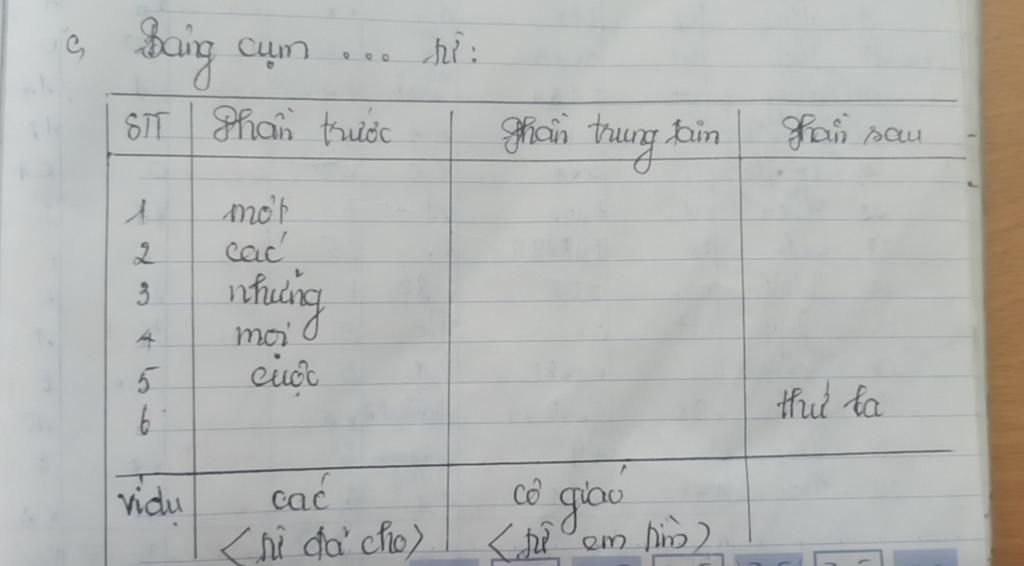 c, Bảng cụm ... từ:
STT Phần trước Phần trung tâm Phần sau
1 một
2 các
3 những
4 mọi
5 cuộc
6 thứ ba
ví dụ các cô giáo
<từ đã cho> <từ em tìm>